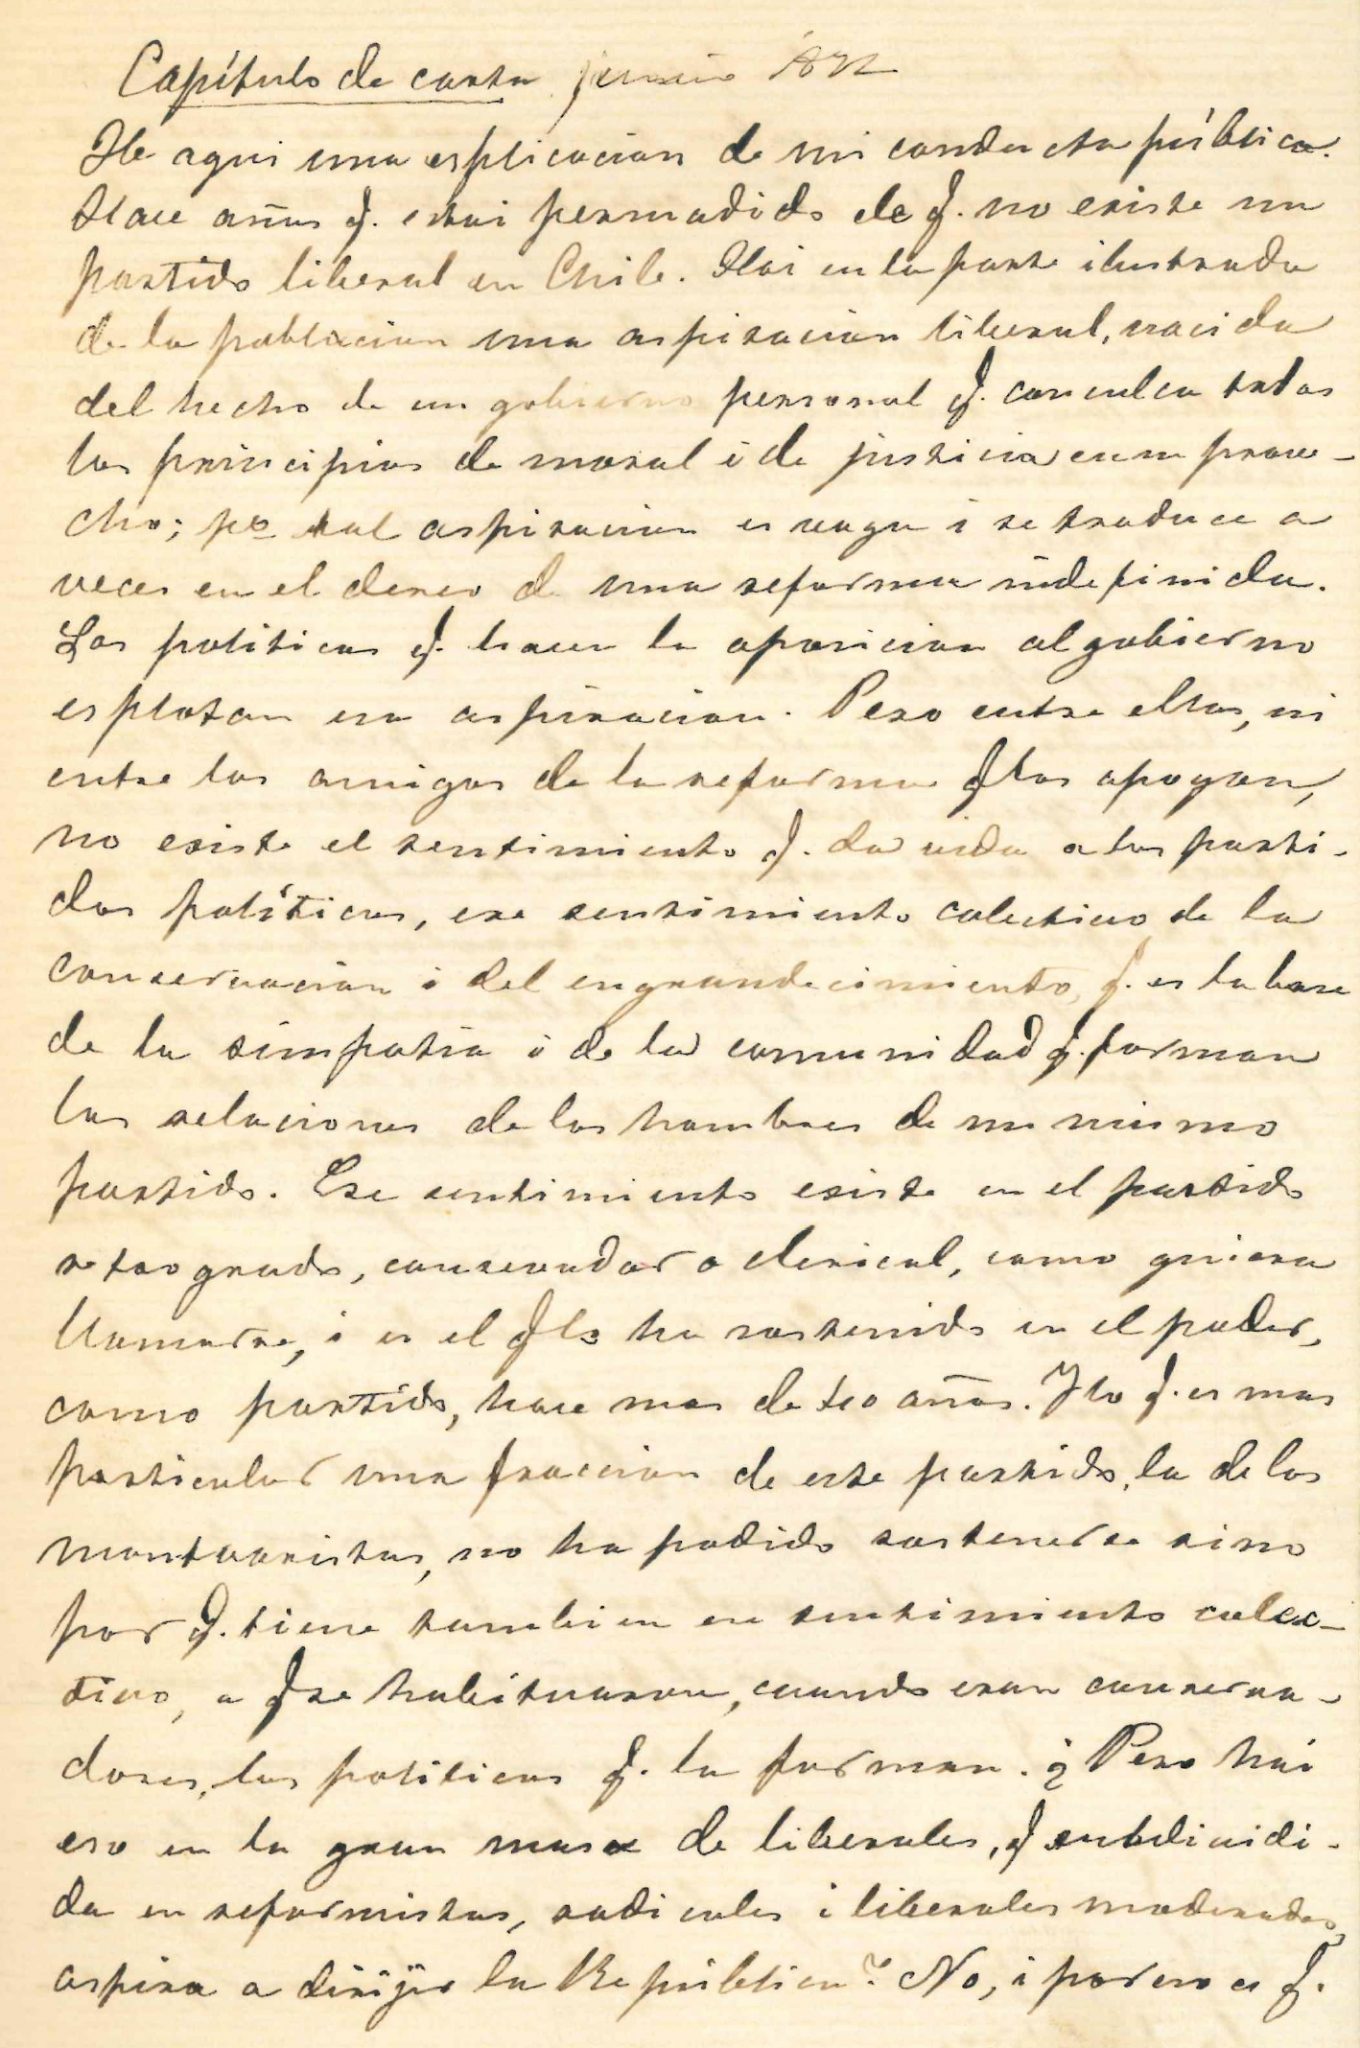 Capítulo de carta junio
He aqui una esplicacion de mi conducta pública.
Hace años q. estoi persuadido de q. no existe un
partido liberal en Chile. Hai en la parte ilustrada
de la poblacion una aspiracion liberal, nacida
del hecho de un gobierno personal q. conculca todos
los principios de moral i de justicia en su prove-
cho; po tal aspiracion es vaga i se traduce a
veces en el deseo de una reforma indefinida.
Los politicos q. hacen la oposicion al gobierno
esplotan esa aspiracion. Pero entre ellos, ni
entre los amigos de la reforma q los apoyan,
no existe el sentimiento q. da vida a los parti-
dos políticos, ese sentimiento colectivo de la
conservacion i del engrandecimiento, q. es la base
de la simpatia i de la comunidad q. forman
las relaciones de los hombres de un mismo
partido. Ese sentimiento existe en el partido
retrogrado, conservador o clerical, como quiera
llamarse, i es el q lo ha sostenido en el poder,
como partido, hace mas de años. I lo q. es mas
particular una fraccion de este partido, la de los
montvaristas, no ha podido sostenerse sino
por q. tiene tambien ese sentimiento colec-
tivo, a q se habituaron, cuando eran conserva-
dores, los politicos q. la forman. ¿Pero hai
eso en la gran masa de liberales, q subdividi-
da en reformistas, radicales i liberales moderados,
aspira a dirijir la República? No, i por eso es q.